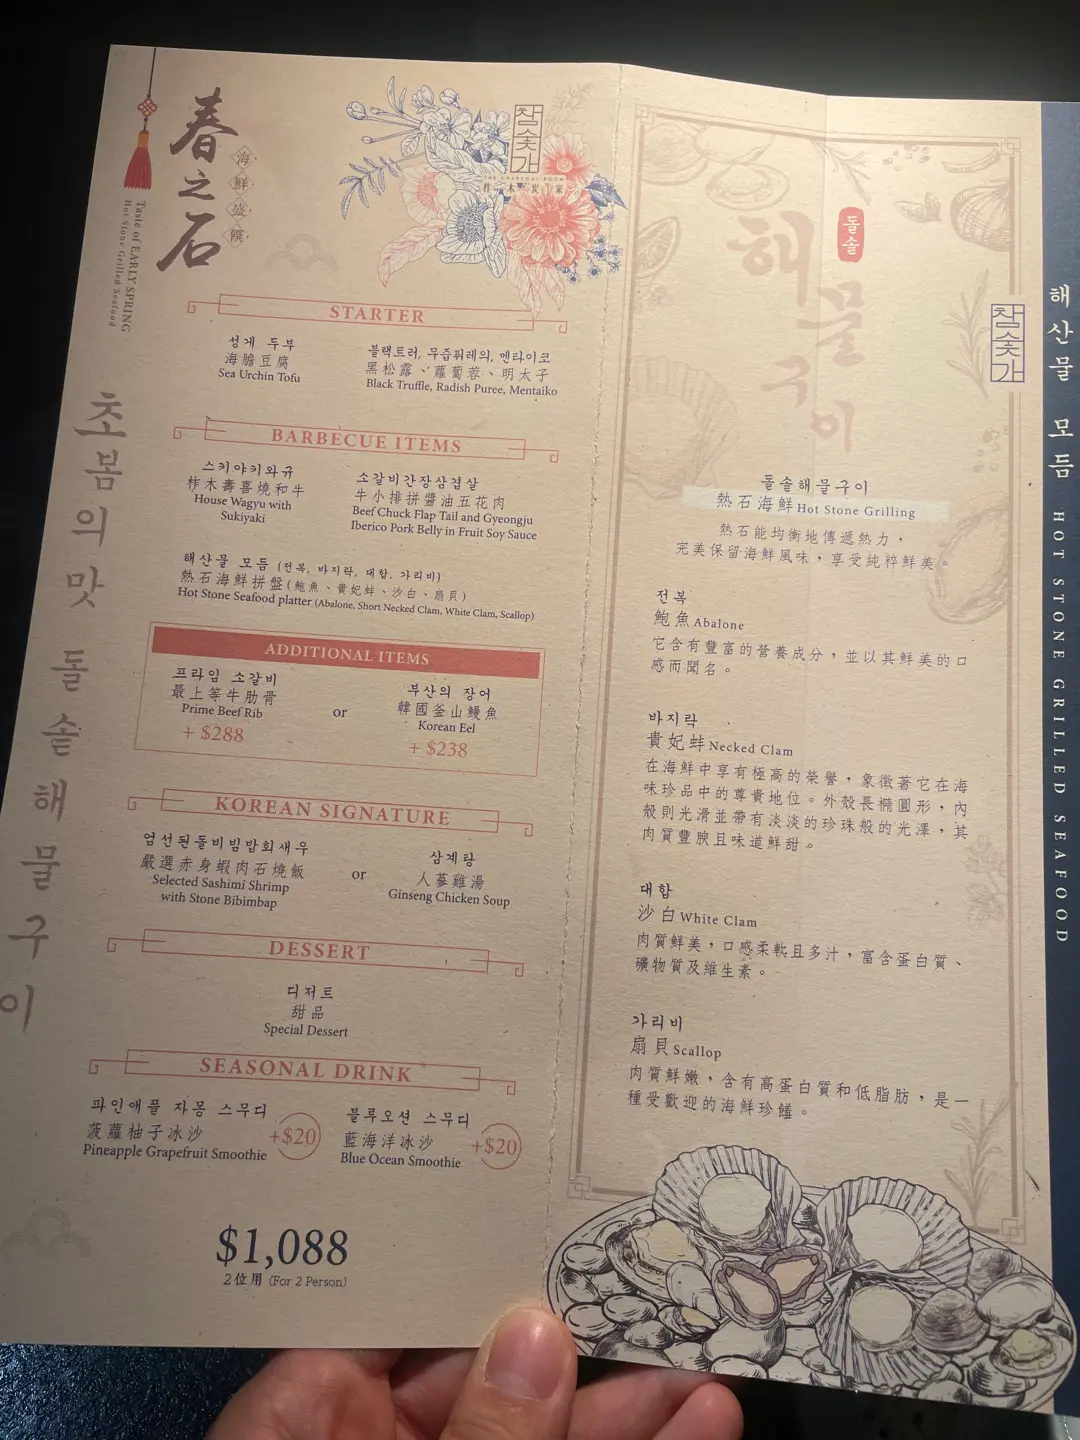 春之石
海鮮盛饌
Taste of EARLY SPRING
Hot Stone Grilled Seafood
초봄의 맛 돌솥해물구이
참숯가
THE CHARCOAL ROOM
柞木炭家
STARTER
성게 두부
海膽豆腐
Sea Urchin Tofu
블랙트러, 무즙퓌레의, 멘타이코
黑松露、蘿蔔蓉、明太子
Black Truffle, Radish Puree, Mentaiko
BARBECUE ITEMS
스키야키와규
柞木壽喜燒和牛
House Wagyu with
Sukiyaki
소갈비간장삼겹살
牛小排拼醬油五花肉
Beef Chuck Flap Tail and Gyeongju
Iberico Pork Belly in Fruit Soy Sauce
해산물 모듬 (전복, 바지락, 대합, 가리비)
熱石海鮮拼盤(鮑魚、貴妃蚌、沙白、扇貝)
Hot Stone Seafood platter (Abalone, Short Necked Clam, White Clam, Scallop)
ADDITIONAL ITEMS
프라임 소갈비
最上等牛肋骨
Prime Beef Rib
+ $288
or
부산의 장어
韓國釜山鰻魚
Korean Eel
+ $238
KOREAN SIGNATURE
엄선된돌비빔밥회새우
嚴選赤身蝦肉石燒飯
Selected Sashimi Shrimp
with Stone Bibimbap
or
삼계탕
人蔘雞湯
Ginseng Chicken Soup
DESSERT
디저트
甜品
Special Dessert
SEASONAL DRINK
파인애플 자몽 스무디
菠蘿柚子冰沙
Pineapple Grapefruit Smoothie
+$20
블루오션 스무디
藍海洋冰沙
Blue Ocean Smoothie
+$20
$1,088
2位用 (For 2 Person)
돌솥
해물구이
참숯가
돌솥해물구이
熱石海鮮Hot Stone Grilling
熱石能均衡地傳遞熱力，
完美保留海鮮風味，享受純粹鮮美。
전복
鮑魚Abalone
它含有豐富的營養成分，並以其鮮美的口
感而聞名。
바지락
貴妃蚌Necked Clam
在海鮮中享有極高的榮譽，象徵著它在海
味珍品中的尊貴地位。外殼長橢圓形，內
殼則光滑並帶有淡淡的珍珠般的光澤，其
肉質豐腴且味道鮮甜。
대합
沙白White Clam
肉質鮮美，口感柔軟且多汁，富含蛋白質、
礦物質及維生素。
가리비
扇貝Scallop
肉質鮮嫩，含有高蛋白質和低脂肪，是一
種受歡迎的海鮮珍饈。
해산물 모듬 HOT STONE GRILLED SEAFOOD